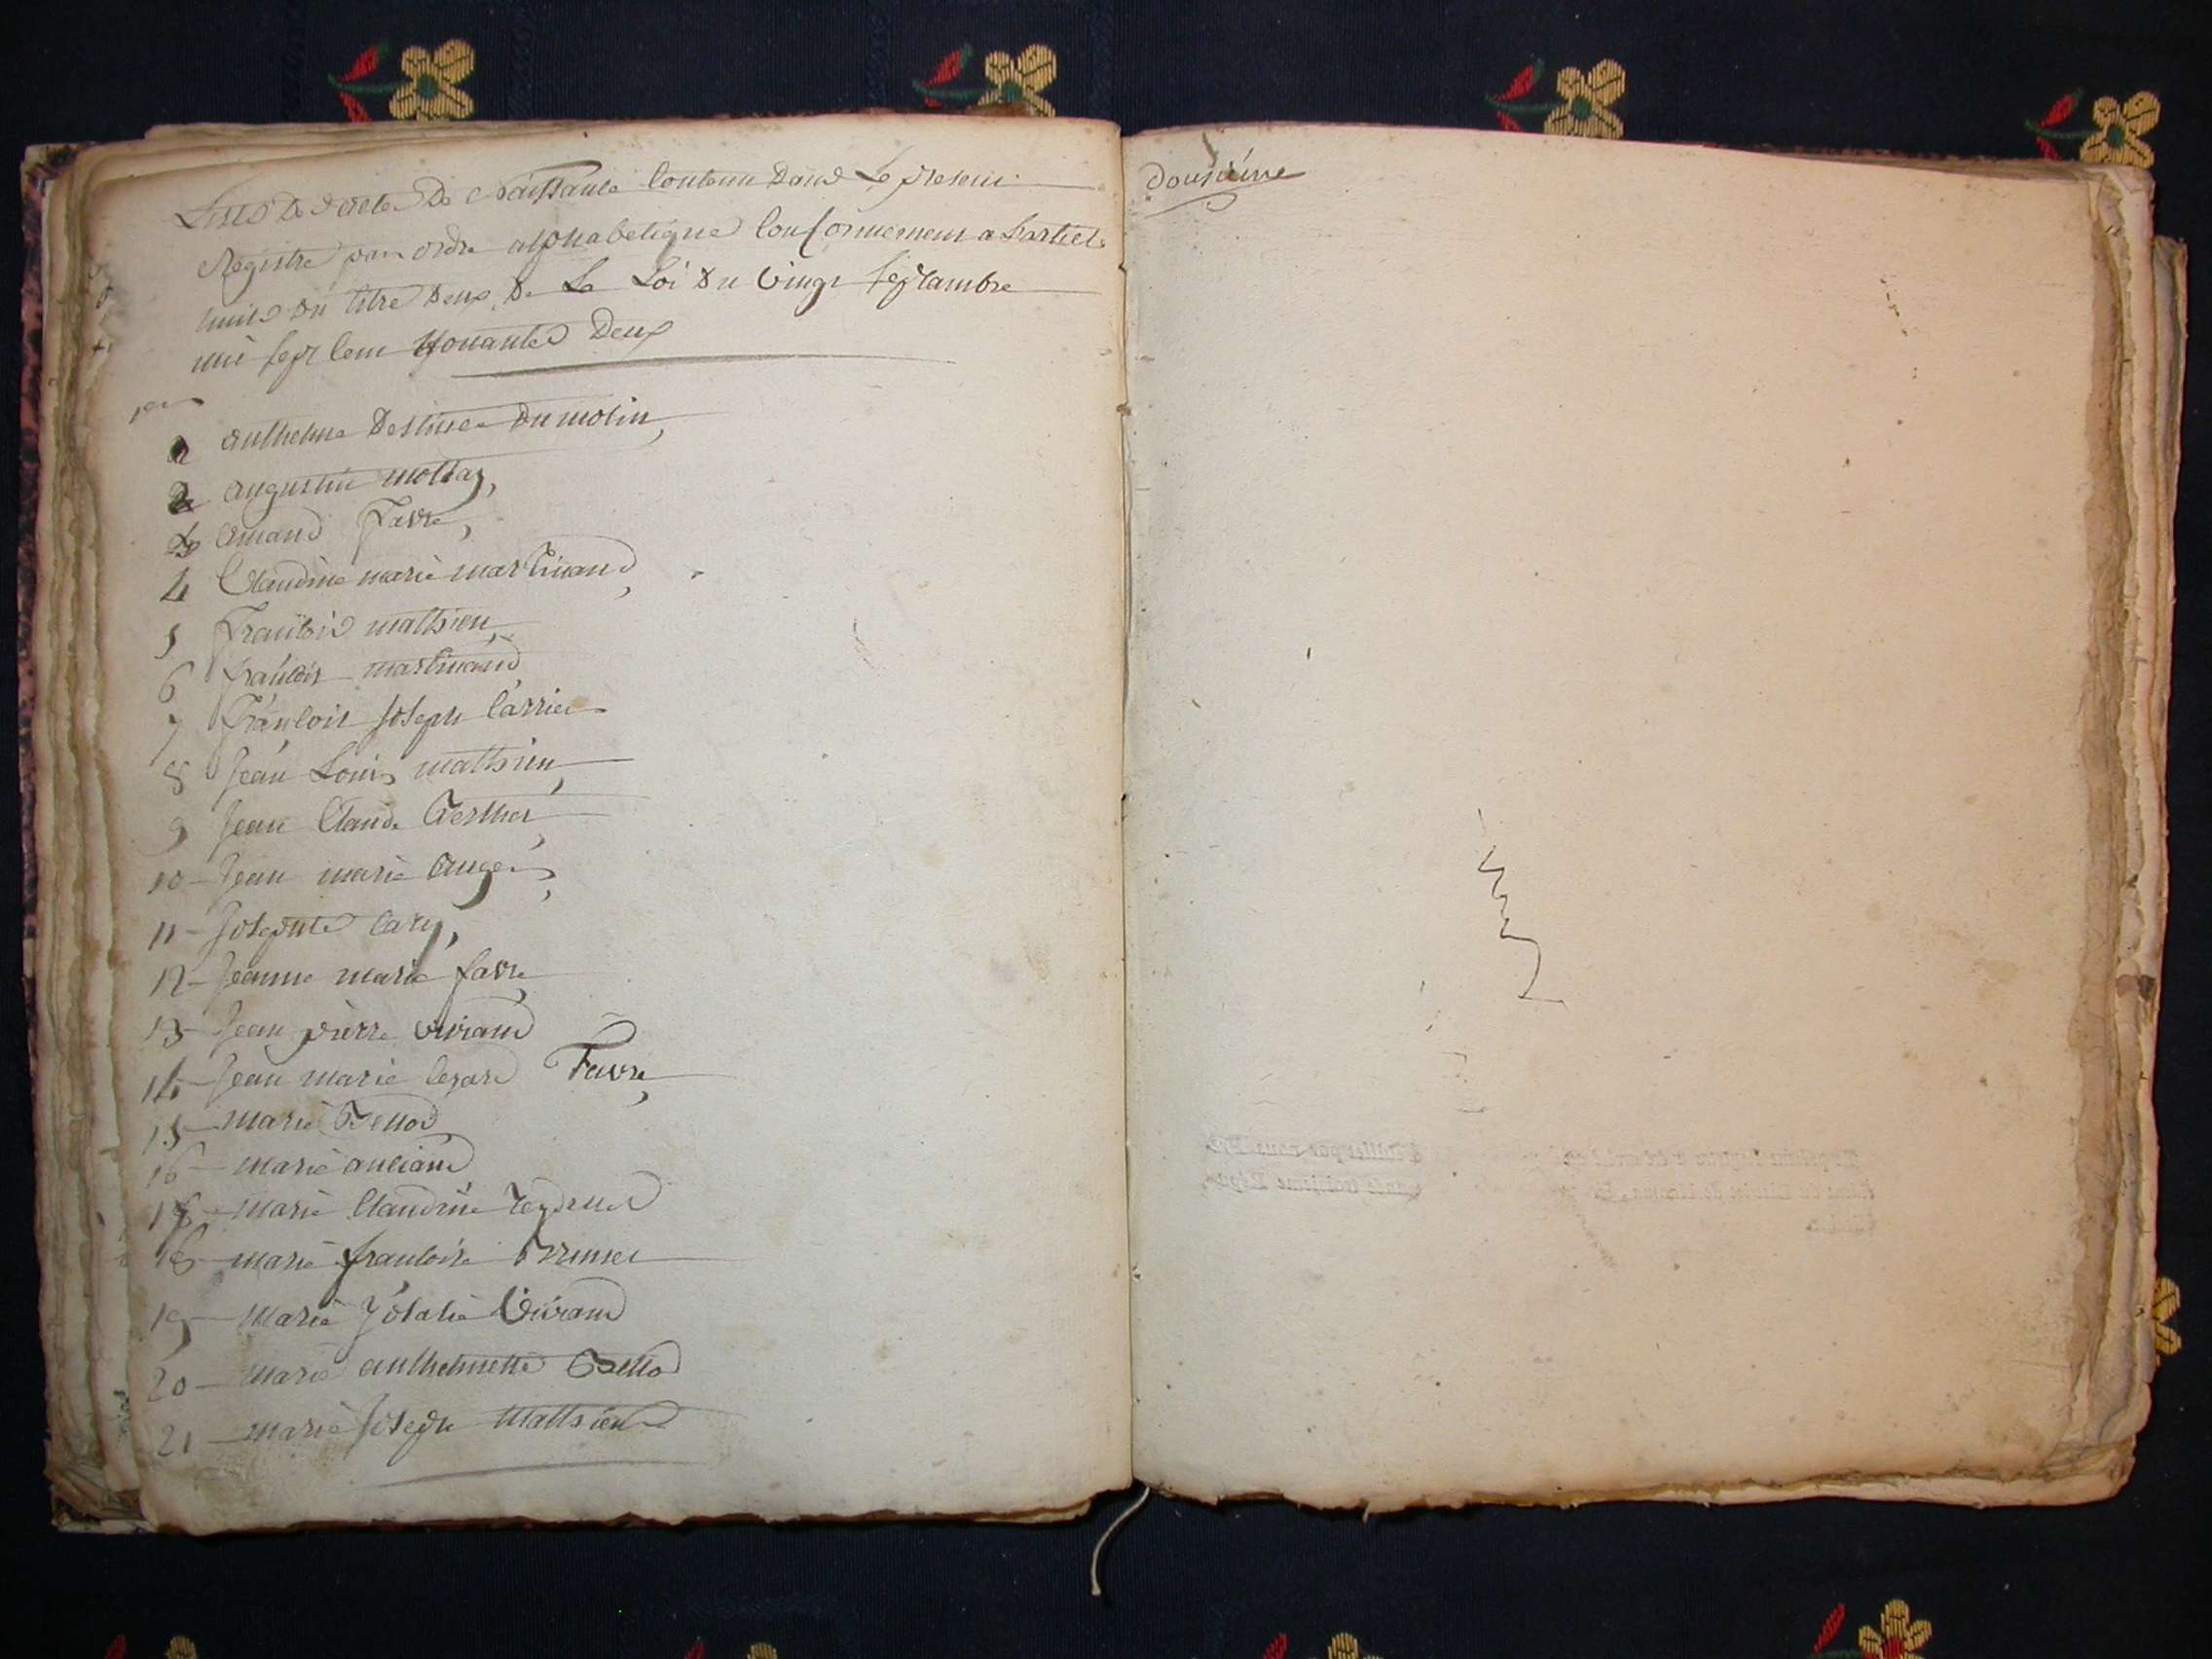 Liste des actes de Naissance contenu dans le present
Registre par ordre alphabetique conformement a Larticle
huit du titre deux de La Loi du vingt septambre
mil sept cent nonante deux
1 anthelme Desiree Dumolin,
2 augustin mollaz,
3 amand favre,
4 Claudine marie martinand,
5 francois mathieu,
6 francois martinand
7 francois joseph carrier
8 jean Louis mathieu,
9 jean Claude Berthet,
10 jean marie auger,
11 josephte cary,
12 jeanne marie favre
13 jean pierre viviand
14 jean marie cezard Favre,
15 marie Bellod
16 marie anciand
17 marie Claudine
18 marie francoise Brunet
19 marie jolalie viviand
20 marie anthelmette Bellod
21 marie joseph Mathieu
dousième